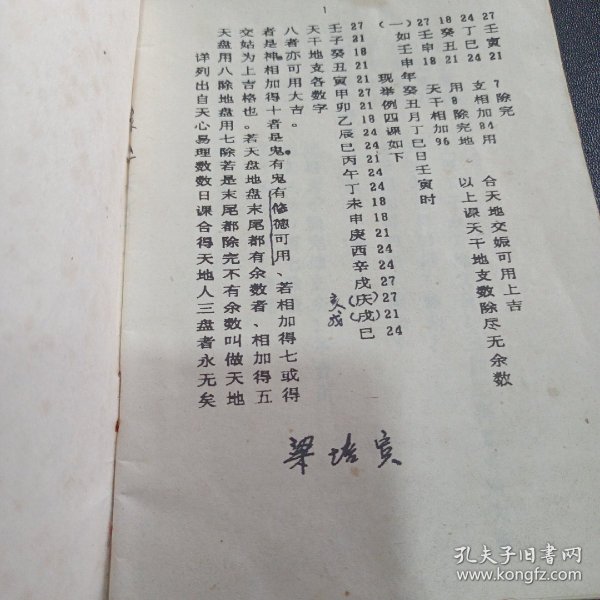 1
详列出自天心易理数数日课合得天地人三盘者永无矣
天盘用八除地盘用七除若是末尾都除完不有余数叫做天地
交姤为上吉格也。若天盘地盘末尾都有余数者、相加得五
者是神、相加得十者是鬼有鬼有修德可用、若相加得七或得
八者亦可用大吉。
天干地支各数字
壬子癸丑寅甲卯乙辰巳丙午丁未申庚酉辛戌(庆)(戌)巳
亥戌
现举例四课如下
(一)如壬申年癸丑月丁巳日壬寅时
27壬申18 天干相加96
18癸丑21 用8除完地
24丁巳24 支相加84用
27壬寅21 7除完
合天地交姤可用上吉
以上课天干地支数除尽无余数
梁培寅
孔夫子旧书网
www.kongfz.com